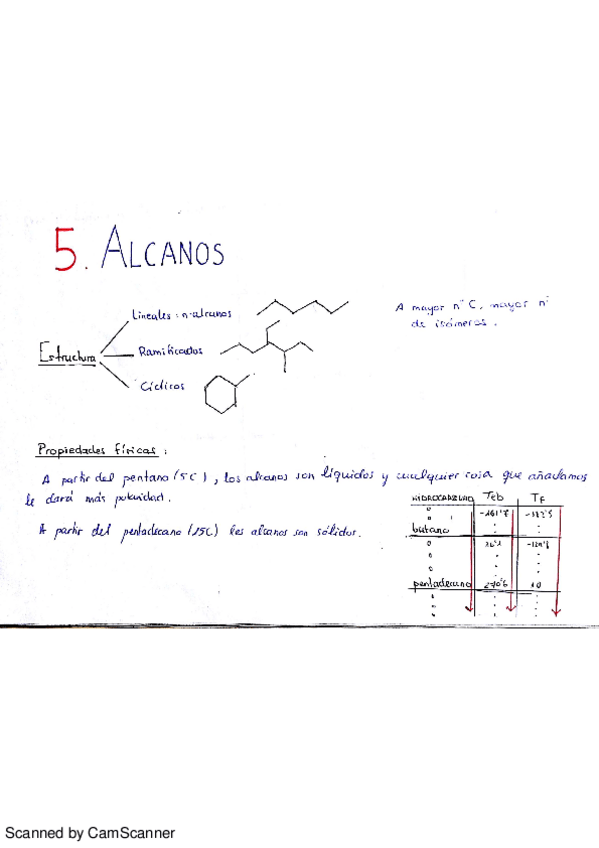 5. ALCANOS
Lineales: n-alcanos
A mayor nº C, mayor nº
de isómeros.
Estructura
Ramificados
Cíclicos
Propiedades físicas:
A partir del pentano (5C), los alcanos son líquidos y cualquier cosa que añadamos
le dará más polaridad.
A partir del pentadecano (15C) los alcanos son sólidos.
HIDROCARBURO Teb TF
butano
pentadecano 270'6 10
Scanned by CamScanner